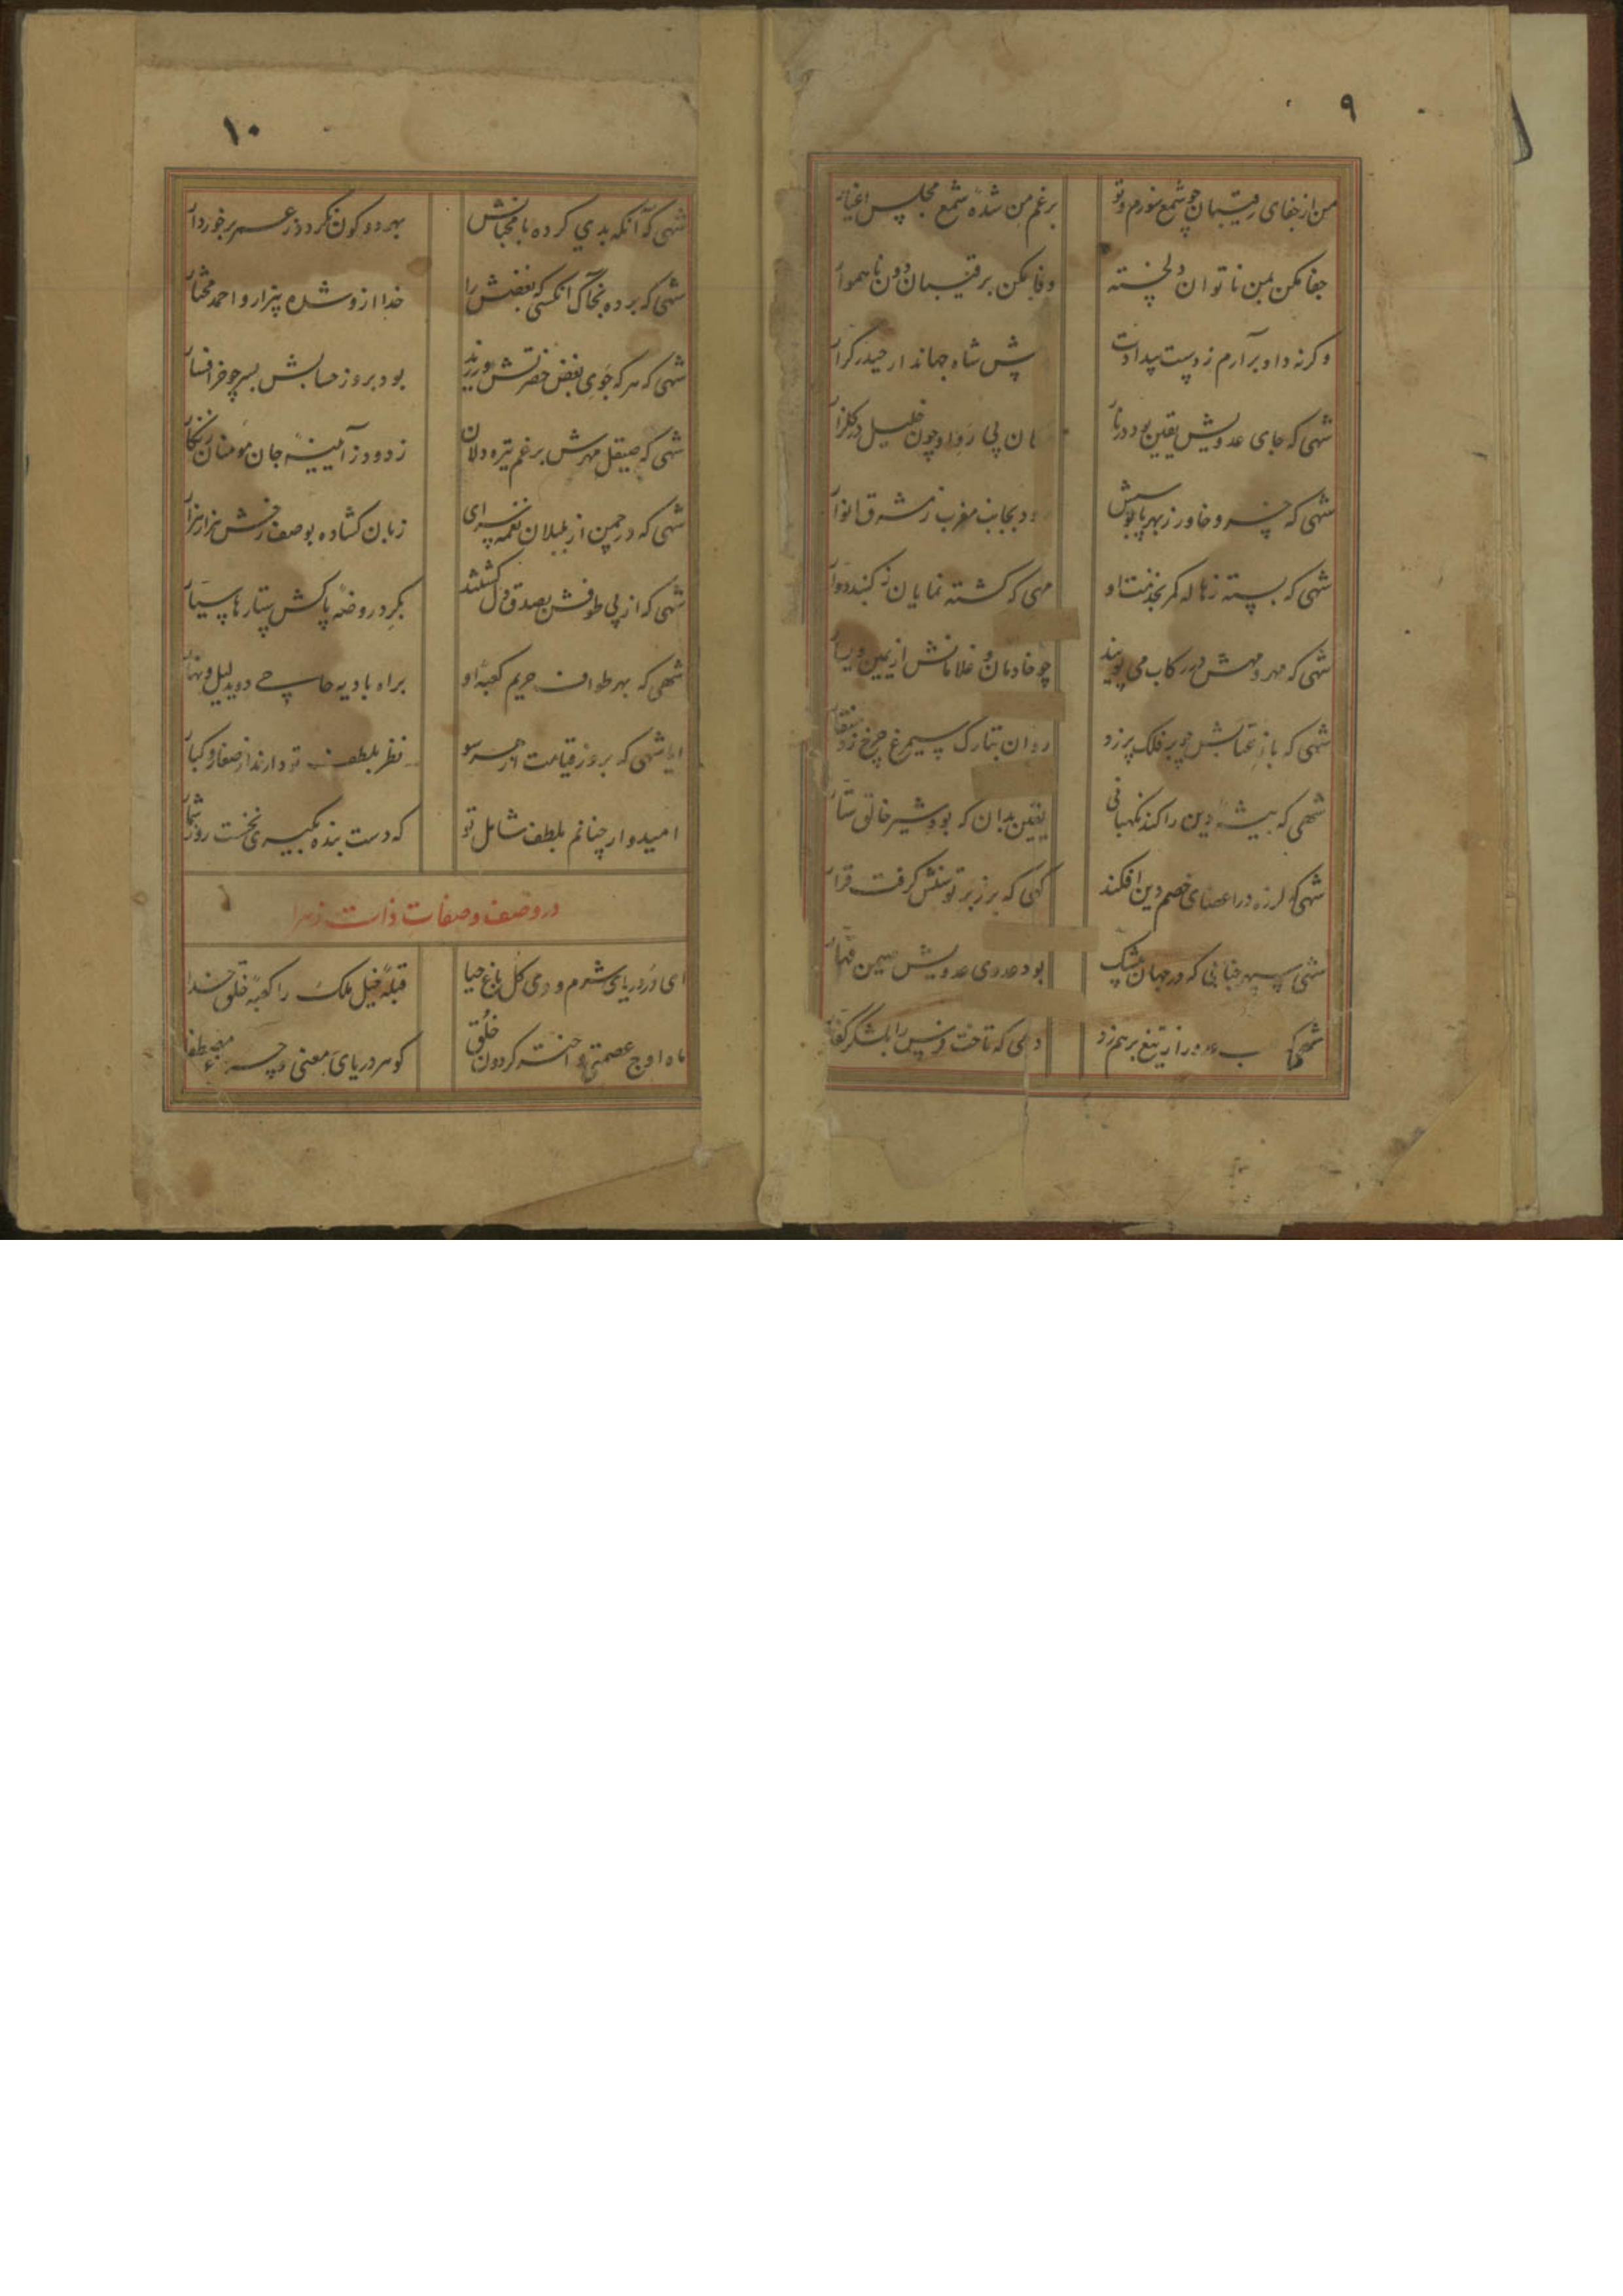 ۹
من از جفای رقیبان چو شمع سوزم و تو
برغم من شده شمع مجلس اغیار
جفا مکن بمن ناتوان دلخسته
وفا مکن برقیبان دون ناهموار
وکرنه داد برآرم ز دست بیدادت
پیش شاه جهاندار حیدر کرار
شهی که جای عدویش یقین بود در نار
ان پی رواو چون خلیل در کلزار
شهی که خسرو خاور ز بهر پابوسش
ود بجانب مغرب ز مشرق انوار
شهی که بسته ز هاله کمر بخدمت او
مهی که کشته نمایان ز کنبد دوار
شهی که مهر و مهش در رکاب می پویند
چو خادمان و غلامانش از یمین و یسار
شهی که باز عتابش چو بر فلک پر زد
روان بتارک سیمرغ چرخ زد منقار
شهی که بیشه دین را کند نکهبانی
یقین بدان که بود شیر خالق ستار
شهی که لرزه در اعضای خصم دین افکند
کهی که بر زبر توسنش کرفت قرار
شهی سپهر جنابی که در جهان بیشک
بود عدوی عدویش مهیمن قهار
شهی که ب عدو را ز تیغ بر هم زد
دمی که تاخت فرس را بلشکر کفار
۱۰
شهی که آنکه بدی کرده با محبانش
بهر دو کون نکردد ز عمر برخوردار
شهی که برده بخاک آنکسی که بغضش را
خدا ازو شده بیزار و احمد مختار
شهی که هر که جوی بغض حضرتش ورزید
بود بروز حسابش بسر چو خر افسار
شهی که صیقل مهرش برغم تیره دلان
زدود ز آیینه جان مومنان زنکار
شهی که در چمن از بلبلان نغمه سرای
زبان کشاده بوصف رخش هزار هزار
شهی که از پی طوفش بصدق دل کشتند
بکرد روضه پاکش ستارها سیار
شهی که بهر طواف حریم کعبه او
براه بادیه حاجی دوید لیل و نهار
ایا شهی که بروز قیامت از هر سو
نظر بلطف تو دارند از صغار و کبار
امیدوار چنانم بلطف شامل تو
که دست بنده بکیری نخست روز شمار
در وصف و صفات ذات زهرا
ای در دریای شرم و وی کل باغ حیا
قبله خیل ملک را کعبه خلق خدا
ماه اوج عصمتی و اختر کردون خلق
کوهر دریای معنی و مصطفا